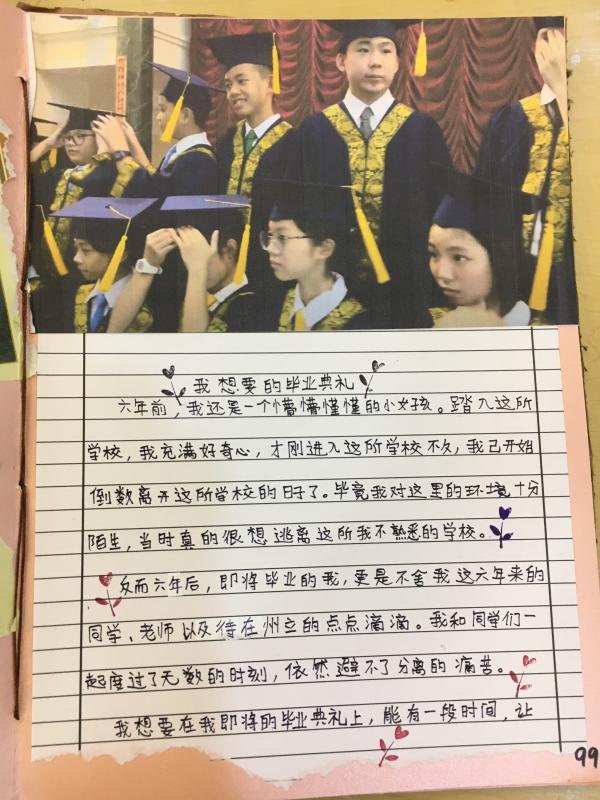 我想要的毕业典礼
六年前，我还是一个懵懵懂懂的小女孩。踏入这所
学校，我充满好奇心，才刚进入这所学校不久，我已开始
倒数离开这所学校的日子了。毕竟我对这里的环境十分
陌生，当时真的很想逃离这所我不熟悉的学校。
反而六年后，即将毕业的我，更是不舍我这六年来的
同学、老师以及待在州立的点点滴滴。我和同学们一
起度过了无数的时刻，依然避不了分离的痛苦。
我想要在我即将的毕业典礼上，能有一段时间，让
99